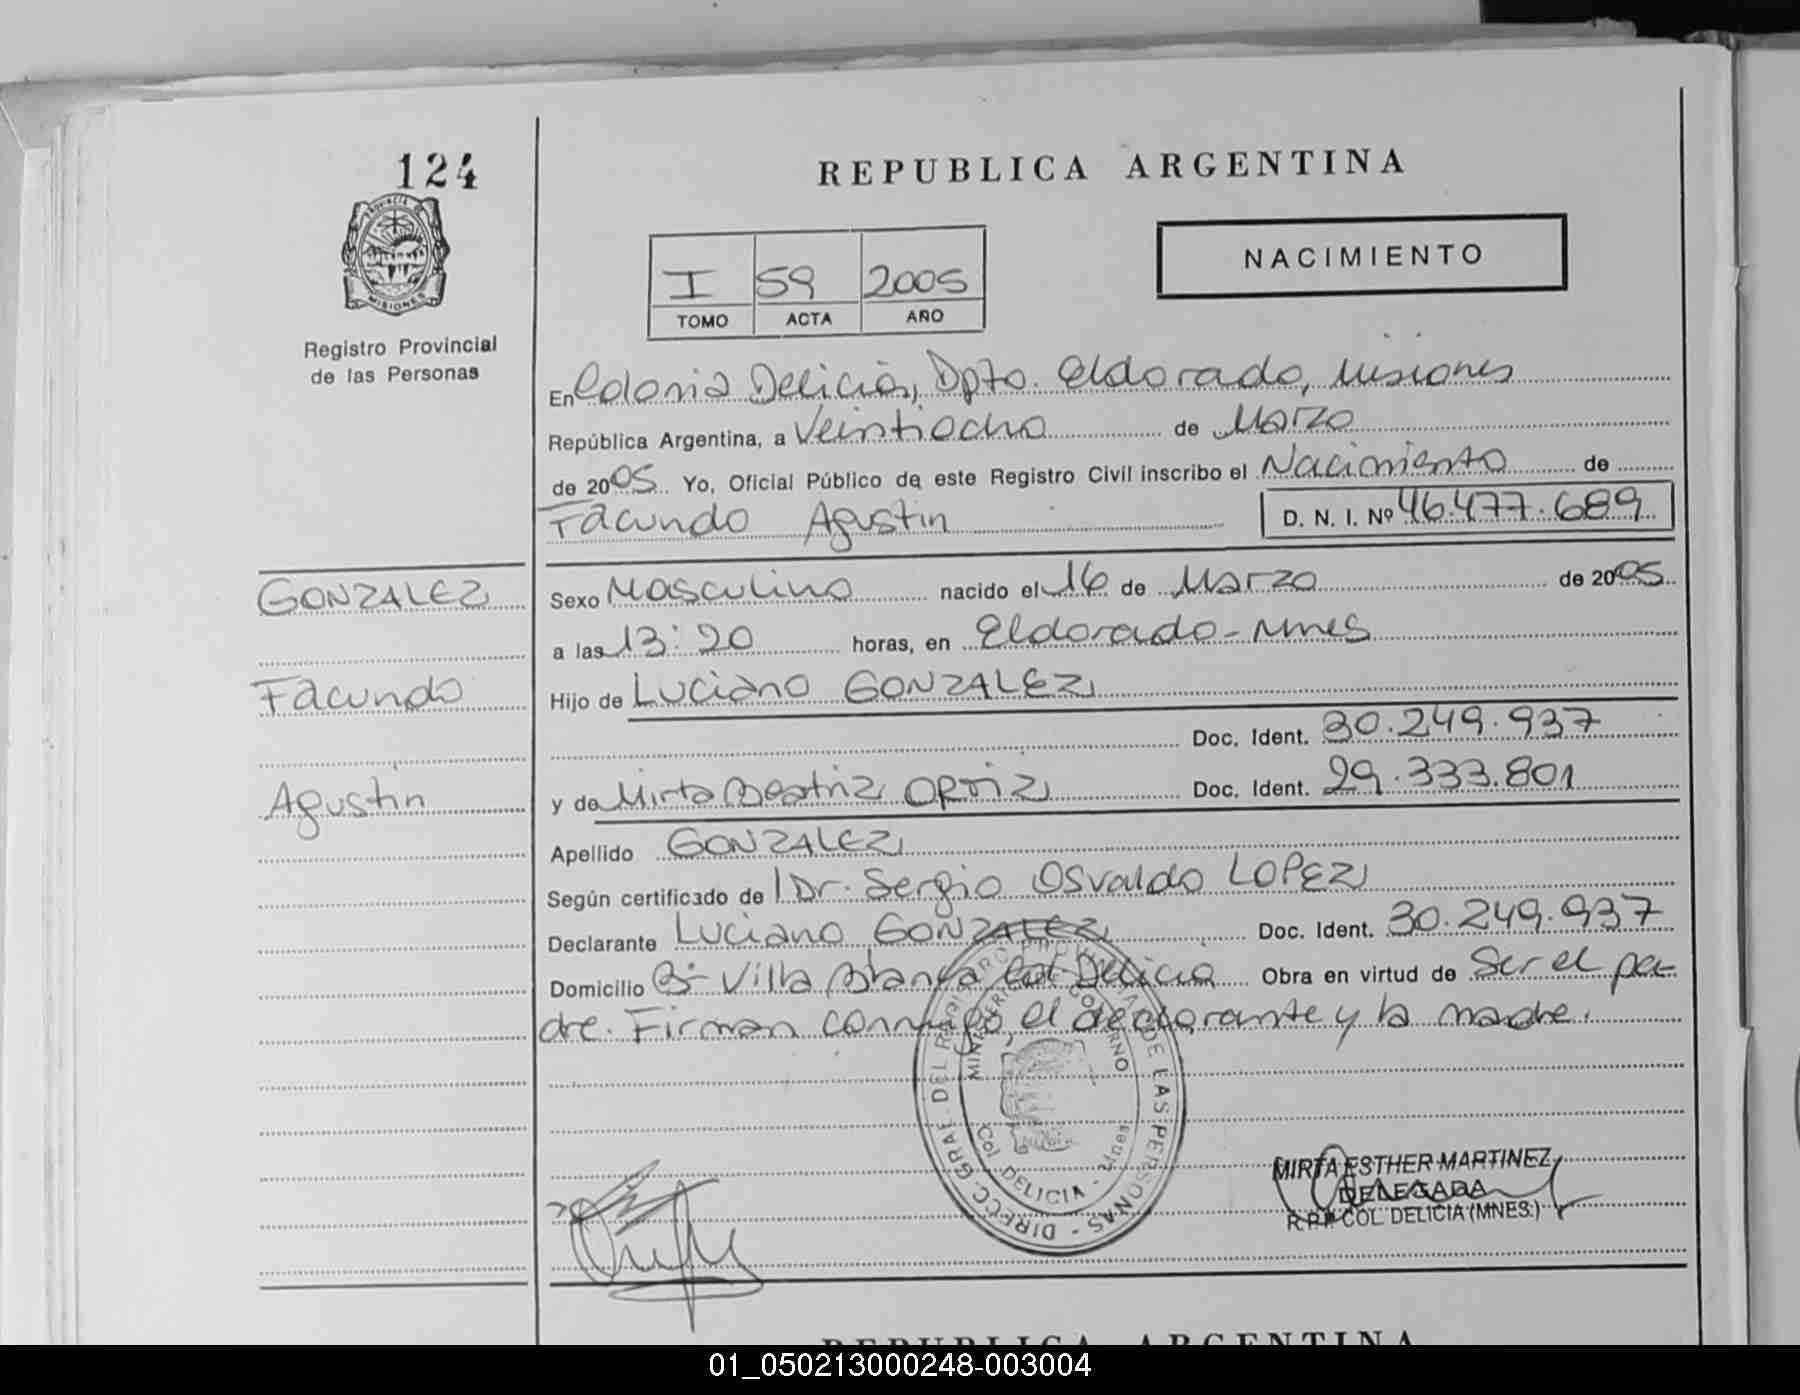 124
PROVINCIA
MISIONES
Registro Provincial
de las Personas
REPUBLICA ARGENTINA
NACIMIENTO
I 59 2005
TOMO ACTA AÑO
En Colonia Delicia, Dpto. Eldorado, Misiones
República Argentina, a Veintiocho de Marzo
de 2005 Yo, Oficial Público de este Registro Civil inscribo el Nacimiento de
Facundo Agustin D. N. I. Nº 46.477.689
GONZALEZ
Facundo
Agustin
Sexo Masculino nacido el 16 de Marzo de 2005
a las 13:20 horas, en Eldorado-Mnes
Hijo de Luciano GONZALEZ
Doc. Ident. 30.249.937
y de Mirta Beatriz ORTIZ Doc. Ident. 29.333.801
Apellido GONZALEZ
Según certificado de Dr. Sergio Osvaldo LOPEZ
Declarante Luciano GONZALEZ Doc. Ident. 30.249.937
Domicilio Bº Villa Blanca Col. Delicia Obra en virtud de Ser el pa-
dre. Firman conmigo, el declarante y la madre.
DIRECC. GRAL. DEL REGISTRO PROVINCIAL DE LAS PERSONAS
MINISTERIO DE GOBIERNO
Col DELICIA - Mnes
MIRTA ESTHER MARTINEZ
DELEGADA
R.P.P. COL. DELICIA (MNES.)
REPUBLICA ARGENTINA
01_050213000248-003004